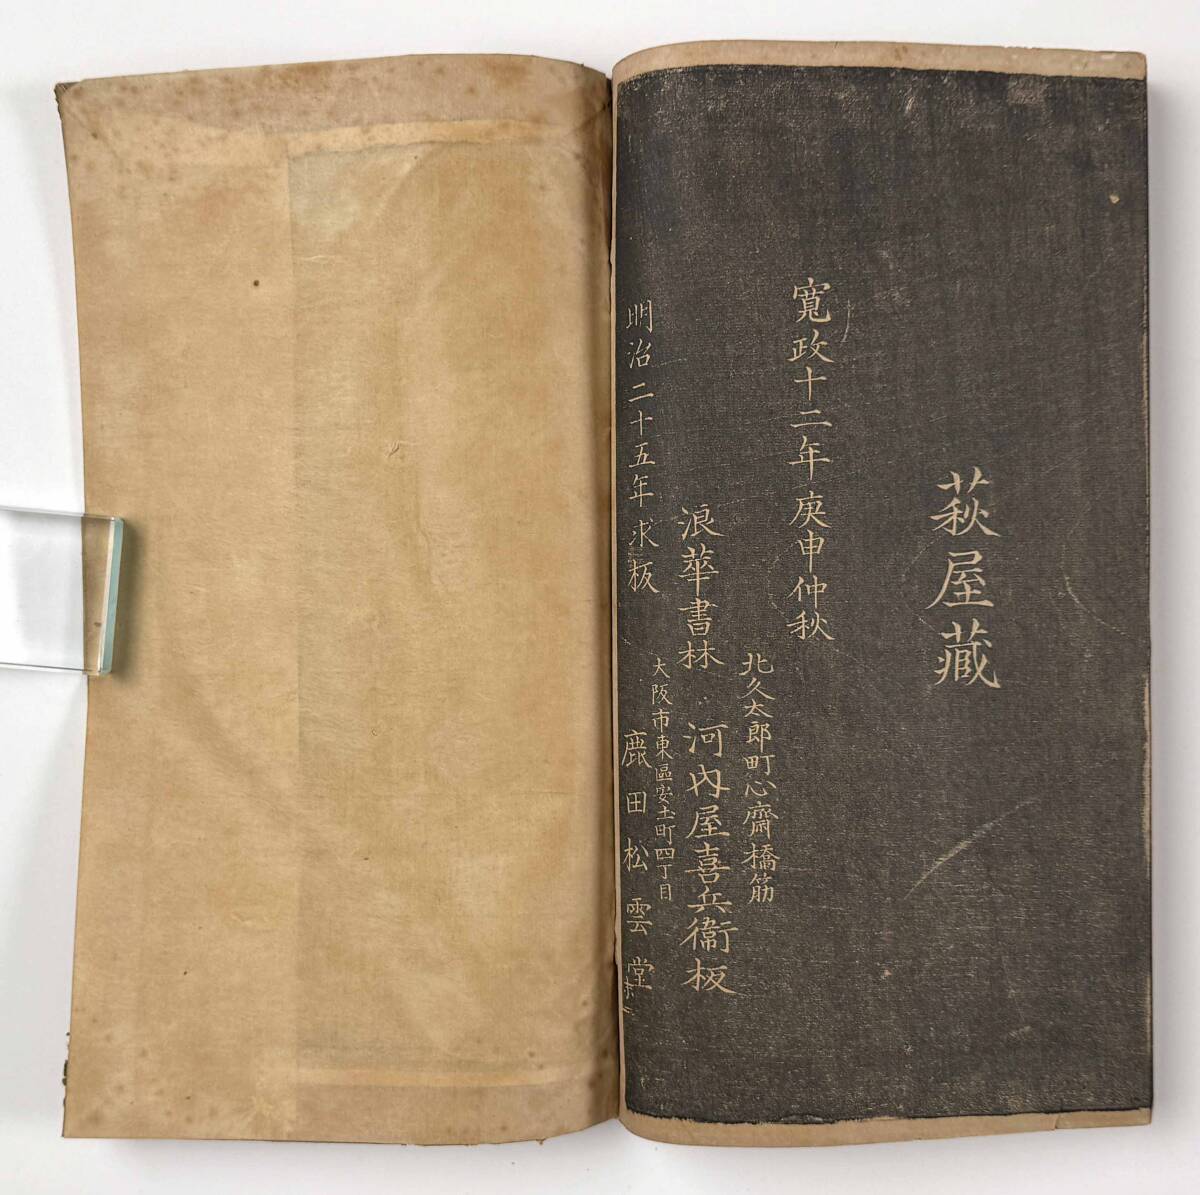 萩屋藏
寛政十二年庚申仲秋
北久太郎町心齋橋筋
浪華書林 河内屋喜兵衞板
大阪市東區安土町四丁目
明治二十五年求板 鹿田松雲堂